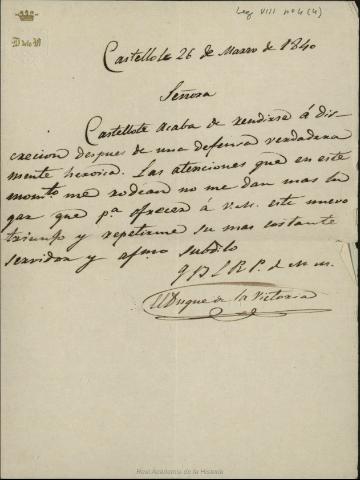 Leg VIII nº 4 (4)
D de la V
Castellote 26 de Marzo de 1840
Señora
Castellote acaba de rendirse á dis-
crecion despues de una defensa verdadera
mente heroica. Las atenciones que en este
momto. me rodean no me dan mas lu
gar que pª ofrecer á V.M. este nuevo
triunfo y repetirme su mas constante
servidor y afmo subdito
Q B L R P. de V. M.
El Duque de la Victoria
Real Academia de la Historia